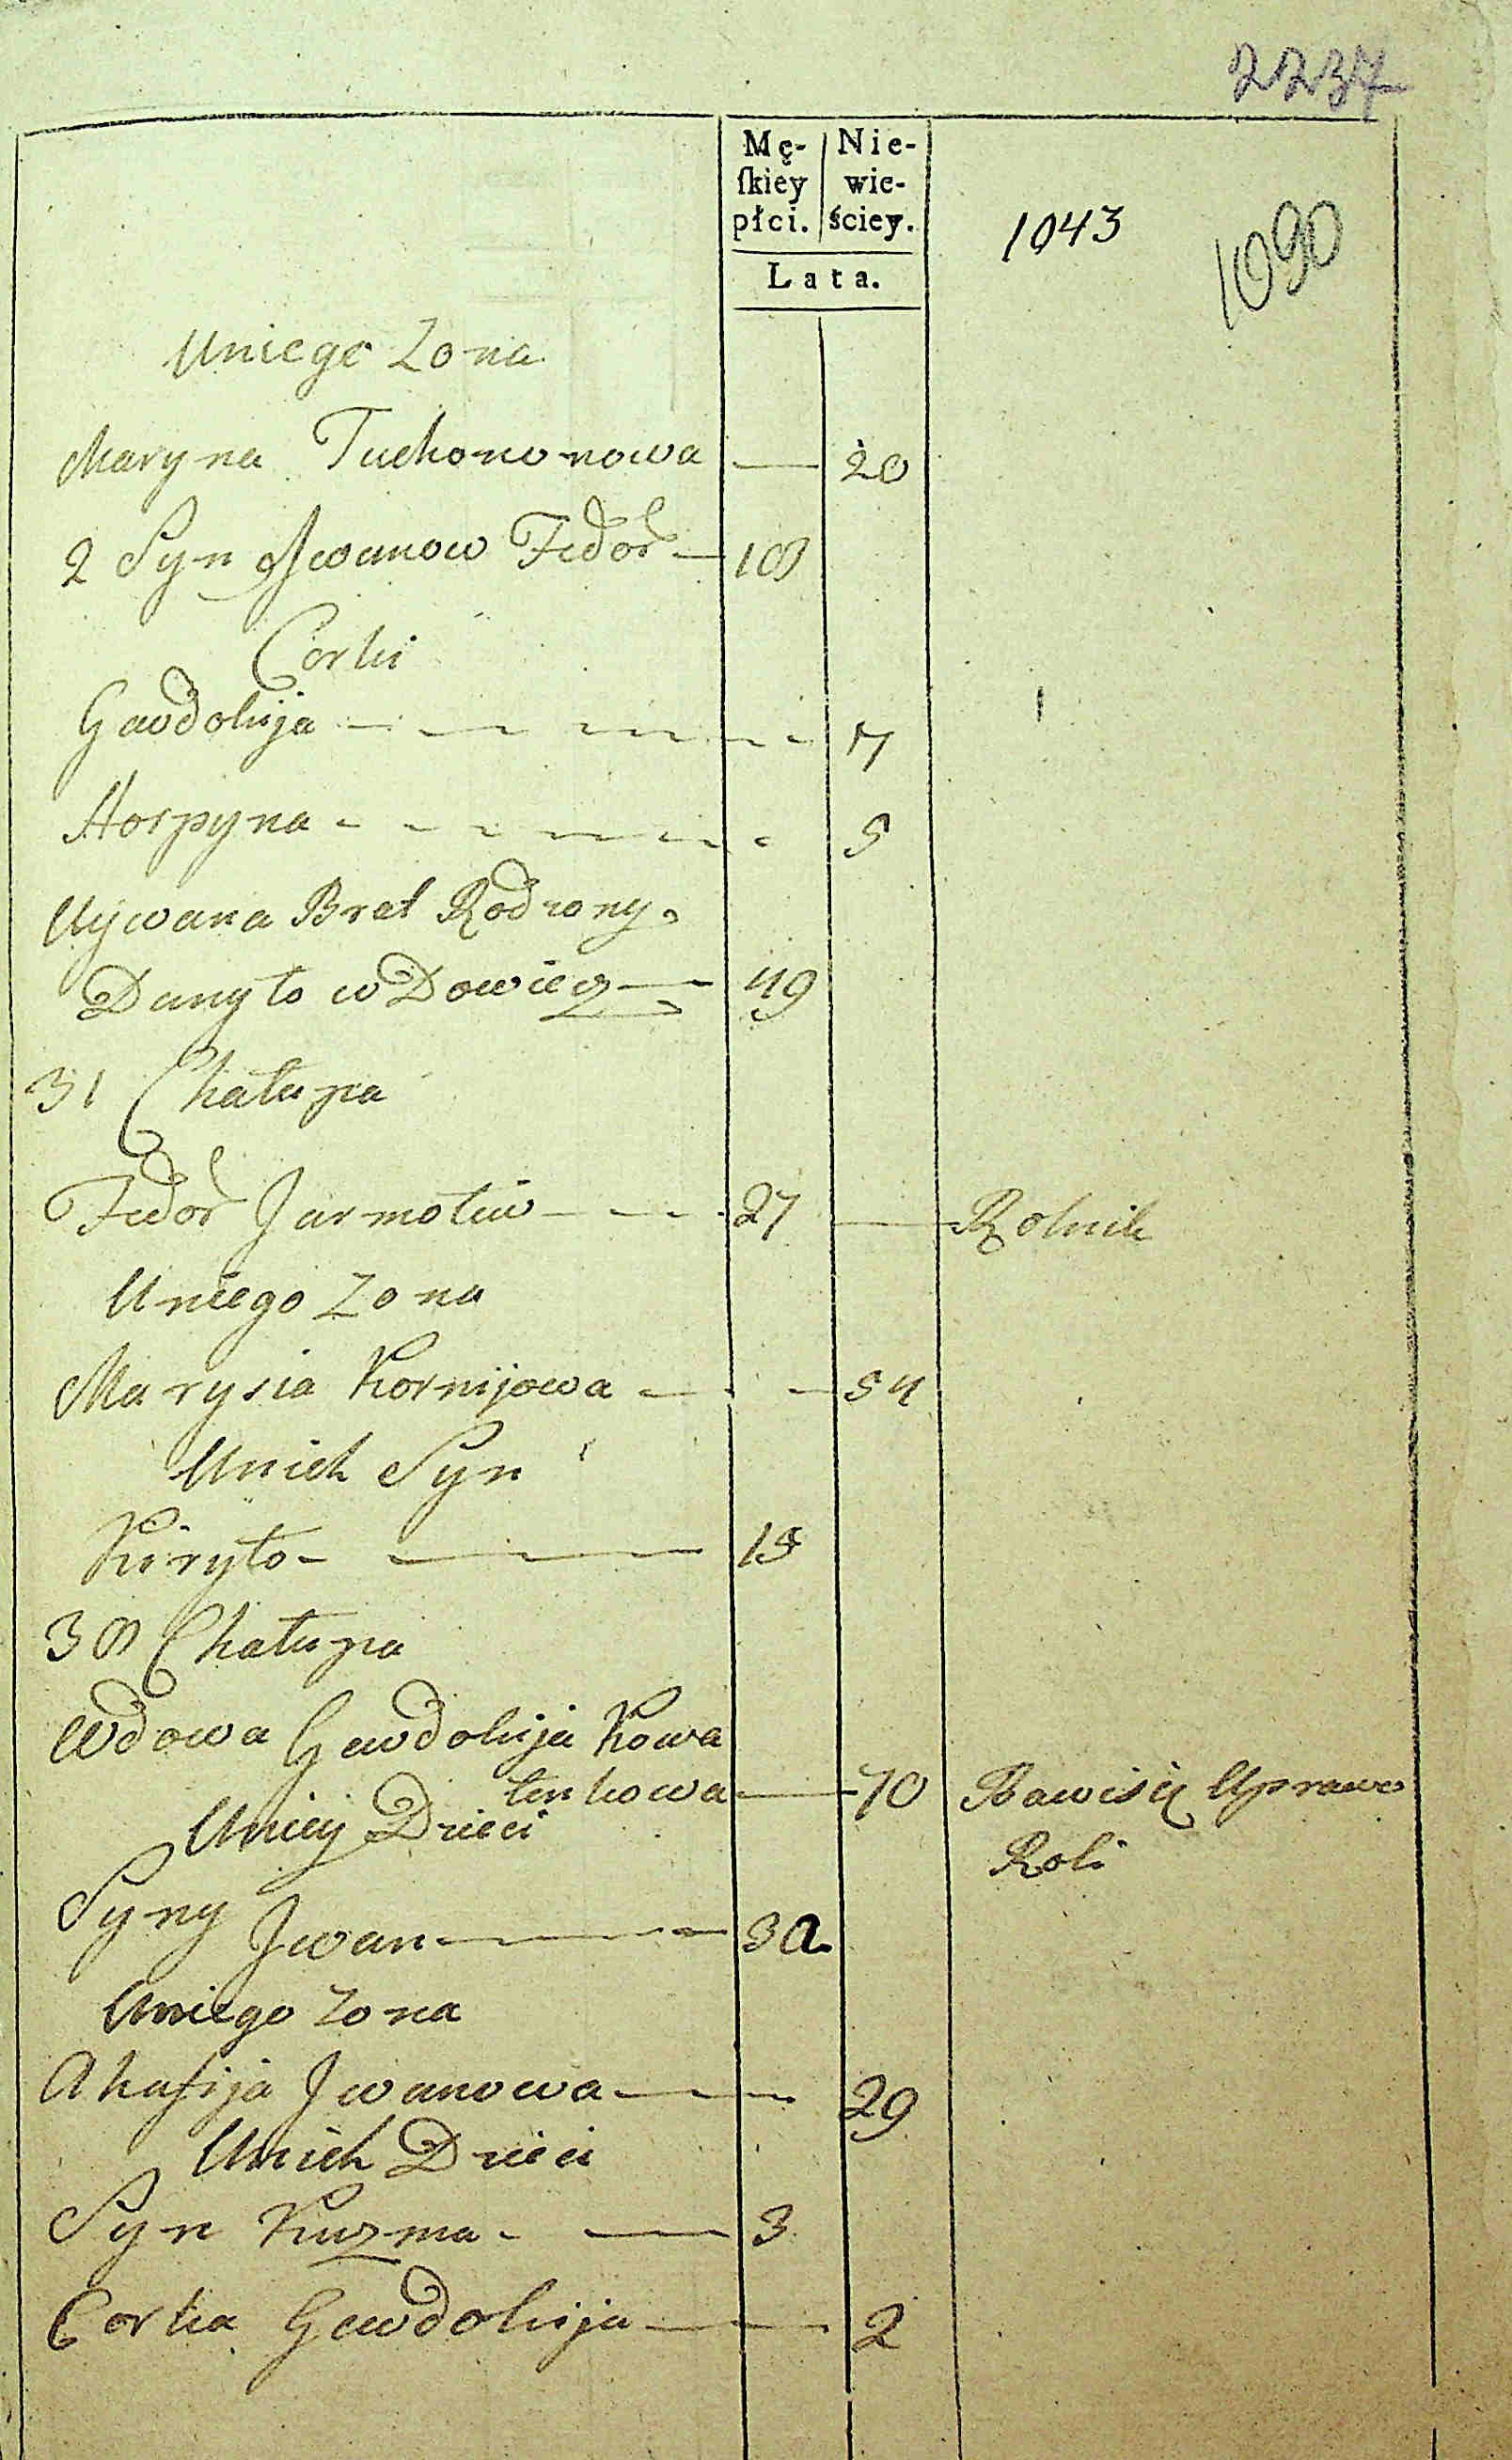 2237
Mę-
ſkiey
płci.
Nie-
wie-
ściey.
Lata.
1043
1090
Uniego Zona
Maryna Tuchonowa — 20
2 Syn Jwanow Fedor — 18
Corki
Gawdokija — 7
Horpyna — 5
Uywana Brat Rodzony
Danyło wDowiec — 49
31 Chałupa
Fedor Jarmołiw — 27 — Rolnik
Uniego Zona
Marysia Kornijowa — 54
Unich Syn
Kiryło — 15
38 Chałupa
WDowa Gawdokija Kowa
lenkowa — 70 Bawisię Uprawo
Roli
Uniey Dzieci
Syny Jwan — 32
Uniego Zona
Akafija Jwanowa — 29
Unich Dzieci
Syn Kuzma — 3
Corka Gawdokija — 2